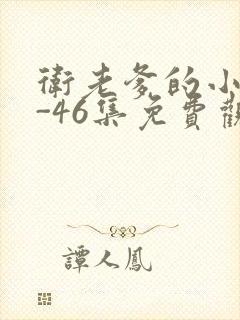 衛老爹的小
-46集免費觀
譚人鳳